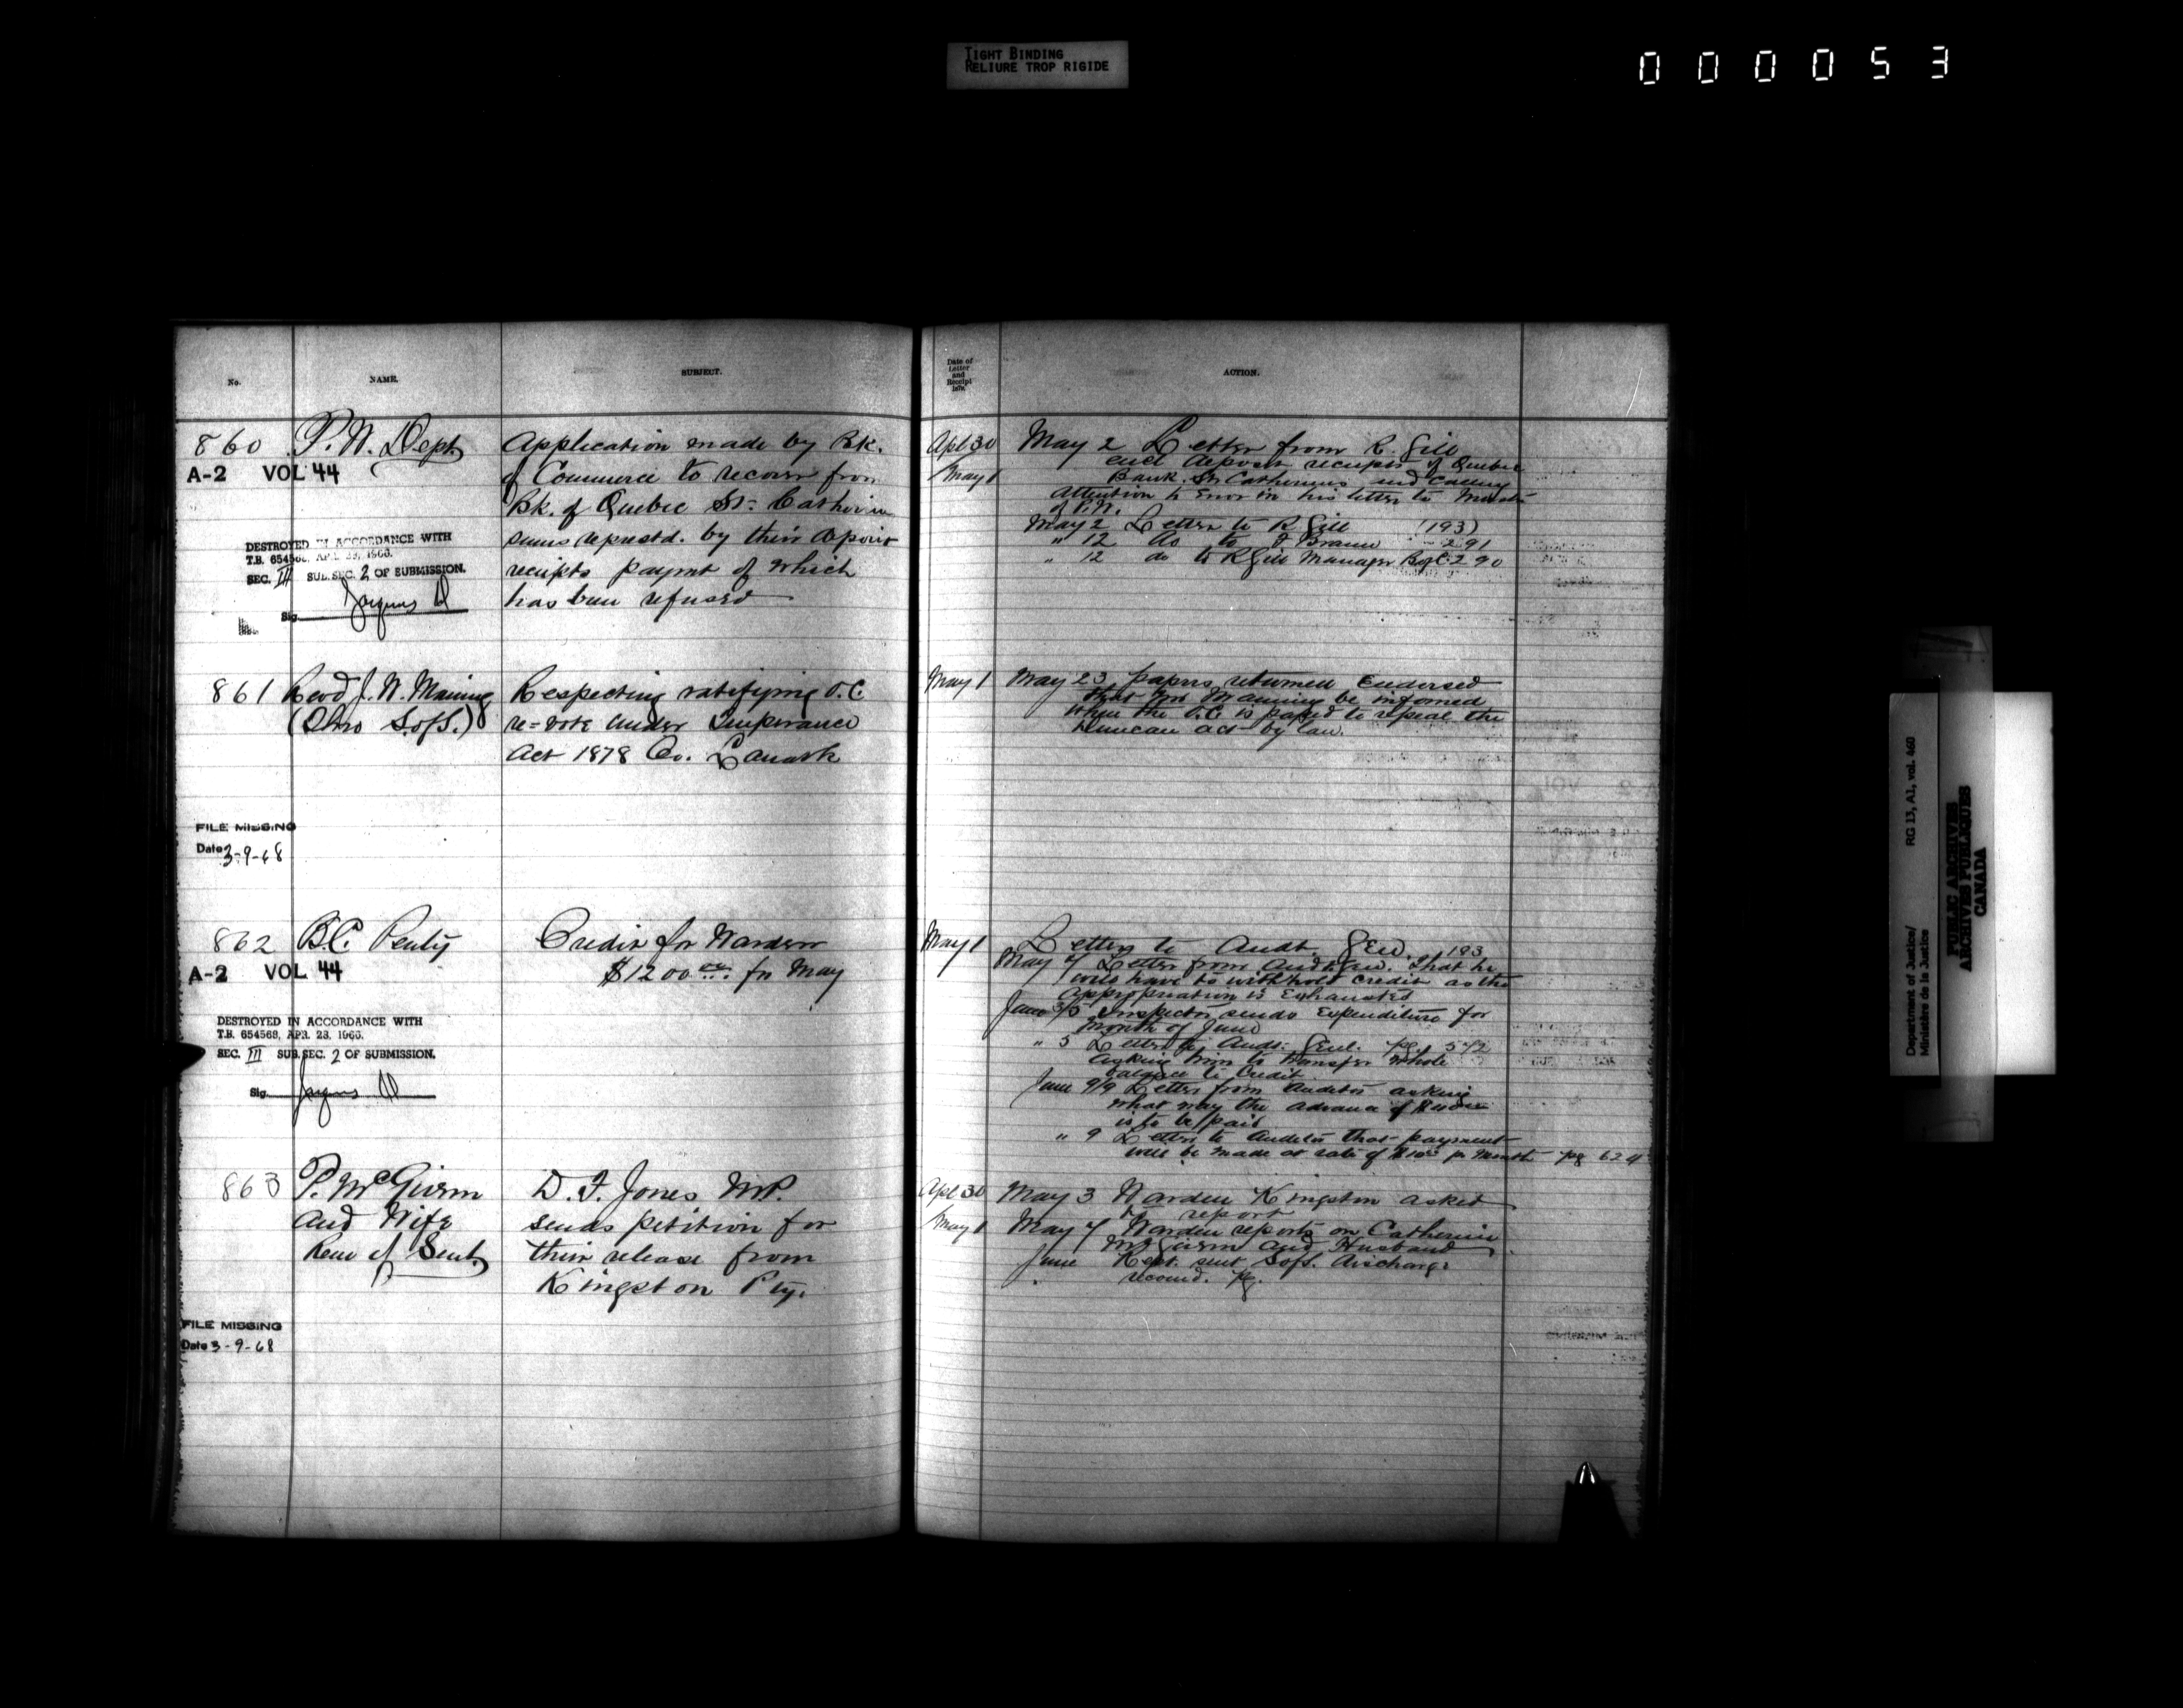 TIGHT BINDING
RELIURE TROP RIGIDE
000053
No.
NAME.
SUBJECT.
860
P. W. Dept.
A-2 VOL 44
Application made by Bk.
of Commerce to recover from
Bk. of Quebec St. Catherin
sums represtd. by their deposit
receipts paymt of which
has been refused
DESTROYED IN ACCORDANCE WITH
T.B. 654568, APR. 23, 1966.
SEC. III SUB.SEC. 2 OF SUBMISSION.
Sig.
861
Revd J. W. Maning
(Thro S. of S.)
Respecting ratifying O.C.
re=vote under Temperance
Act 1878 Co. Lanark
FILE MISSING
Date 3-9-68
862
B.C. Penty
A-2 VOL 44
Credit for Warden
$1200 00 for May
DESTROYED IN ACCORDANCE WITH
T.B. 654568, APR. 23, 1966.
SEC. III SUB.SEC. 2 OF SUBMISSION.
Sig.
863
P. McGivern
and Wife
Rem of Sent.
D. F. Jones M.P.
sends petition for
their release from
Kingston Pty.
FILE MISSING
Date 3-9-68
Date of
Letter
and
Receipt
187
ACTION.
Apl 30
May 1
May 2 Letter from R. Gill
encl deposit receipts of Quebec
Bank St Catherines and calling
attention to error in his letter to
of P.W.
May 2 Letter to R. Gill (193)
" 12 do to F Braun 291
" 12 do to R Gill Manager B of C 290
May 1
May 23 papers returned Endorsed
that Mr Manning be informed
when the O.C. is passed to repeal the
Duncan act by law.
May 1
Letter to Audt. Gen. 193
May 7 Letter from Audt Gen. that he
will have to withhold credit as the
appropriation is Exhausted
June 3/5 Inspector sends Expenditure for
Month of June
" 5 Letter to Audt. Genl. pg. 572
asking him to transfer whole
balance to Credit
June 9/9 Letter from Auditor asking
what way the advance of
is to be paid
" 9 Letter to Auditor that payment
will be made at rate of pr Month pg 624
Apl 30
May 1
May 3 Warden Kingston asked
to report
May 7 Warden reports on Catherine
McGivern and Husband
June Rept. sent S of S. discharge
recomd. pg.
Department of Justice/
Ministère de la Justice
RG 13, A1, vol. 460
PUBLIC ARCHIVES
ARCHIVES PUBLIQUES
CANADA